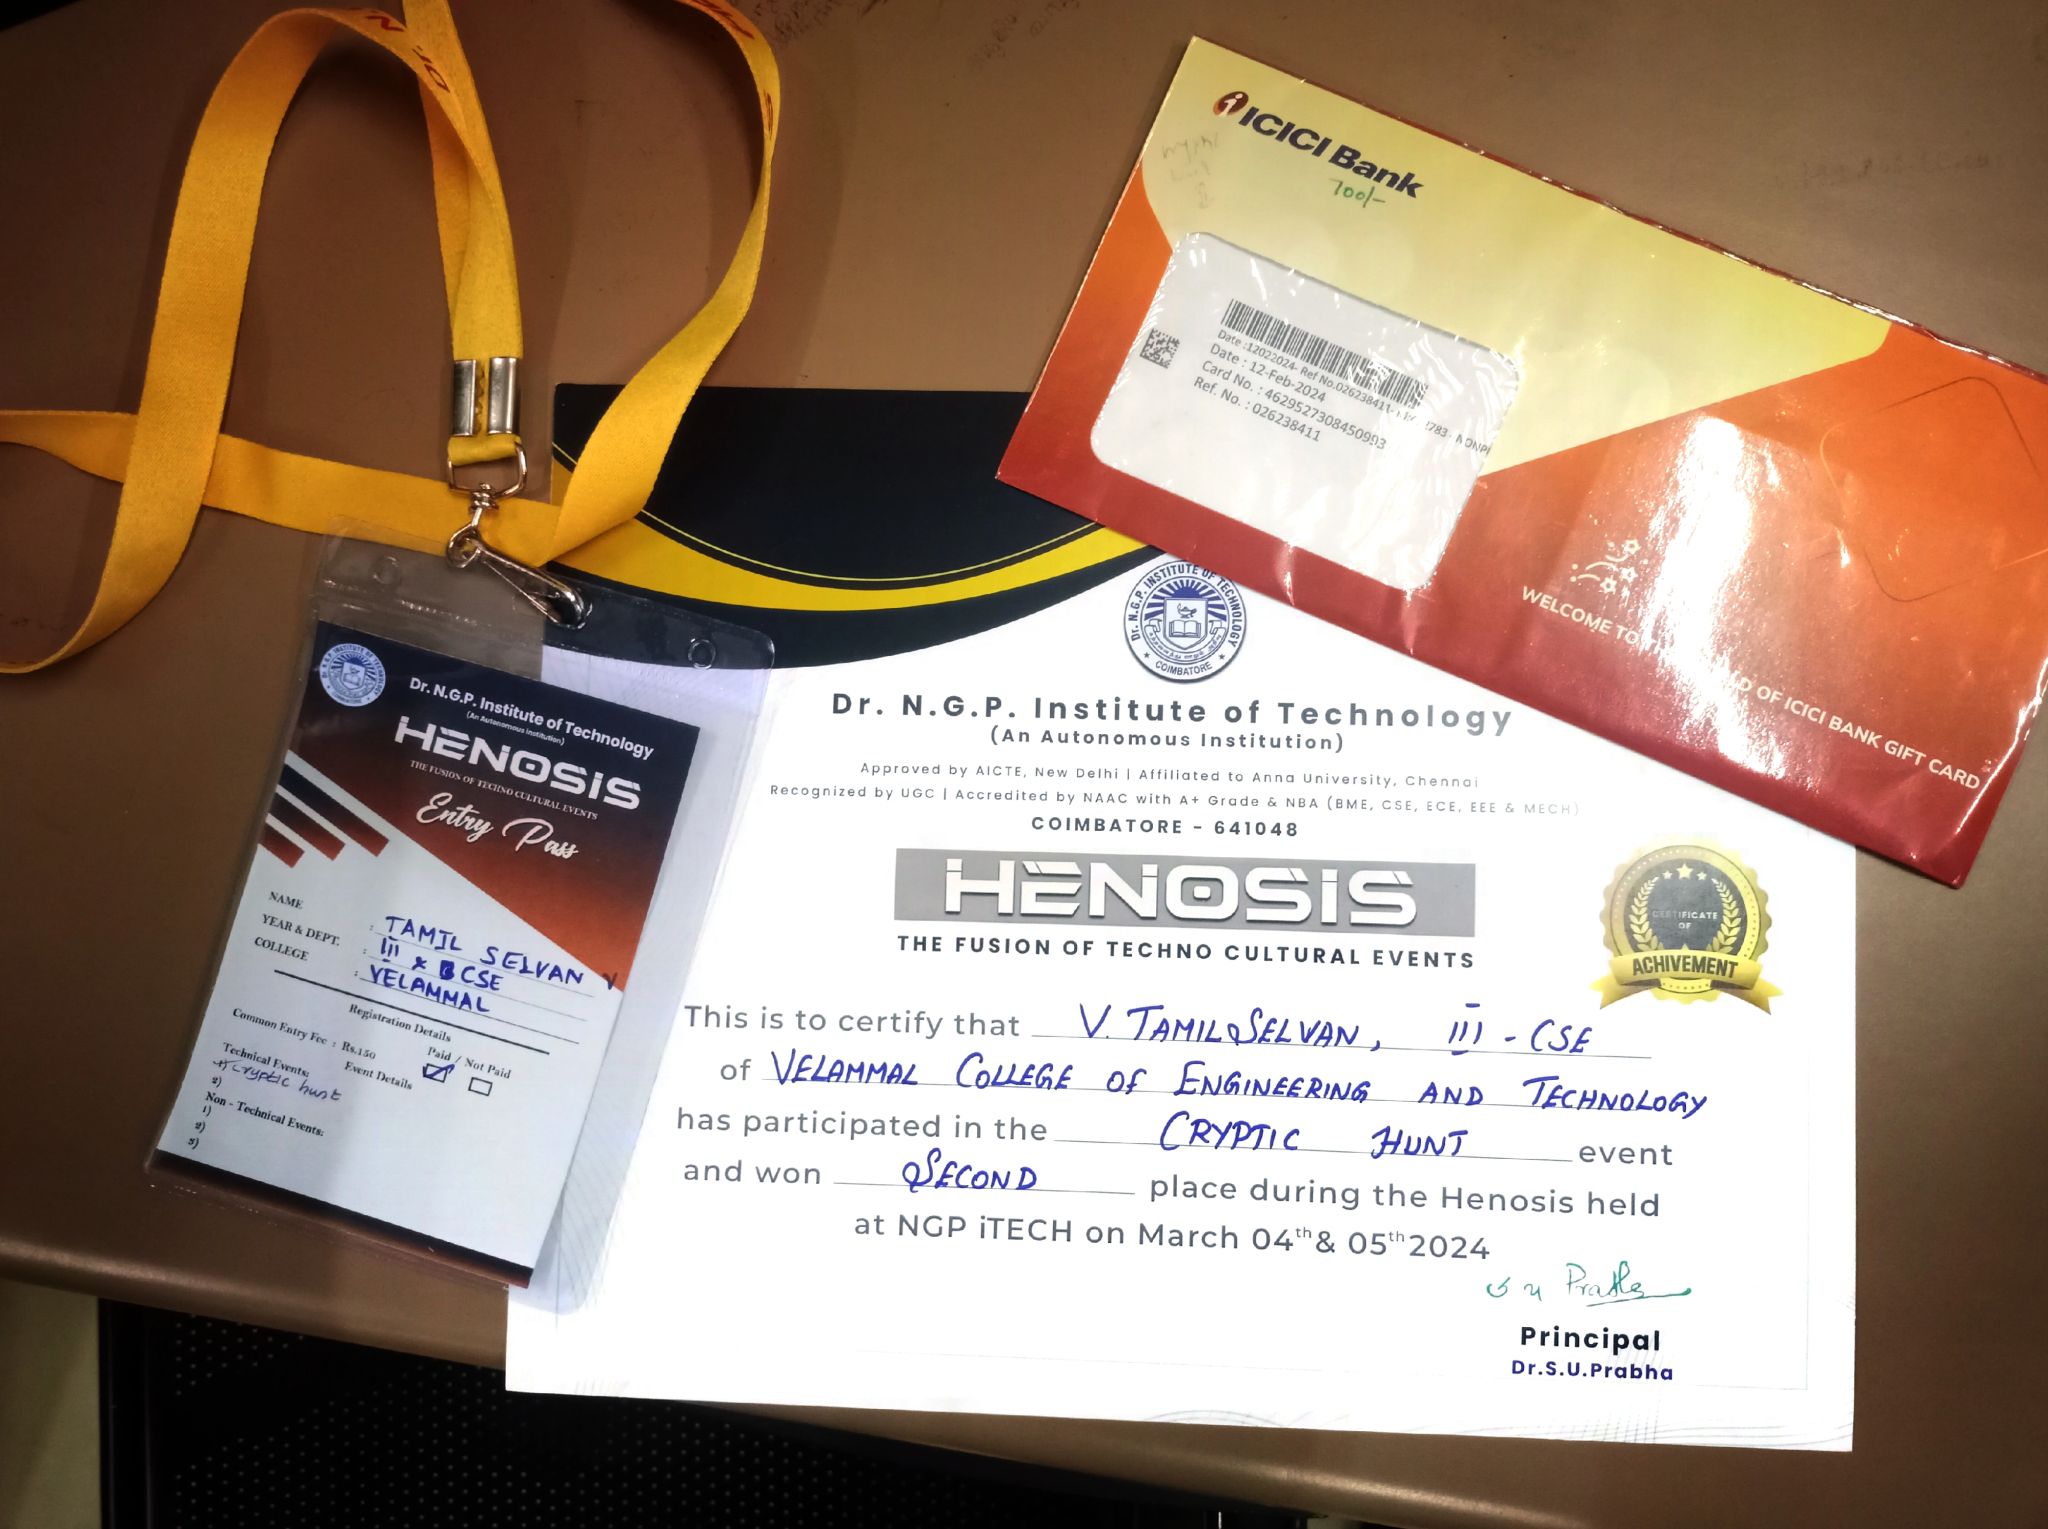 ICICI Bank
700/-
Date :12022024- Ref No.026238411-
Date : 12-Feb-2024
Card No. : 4629527308450993
Ref. No. : 026238411
WELCOME TO
D OF ICICI BANK GIFT CARD
Dr. N.G.P. Institute of Technology
(An Autonomous Institution)
HENOSIS
THE FUSION OF TECHNO CULTURAL EVENTS
Entry Pass
NAME : TAMIL SELVAN V
YEAR & DEPT. : III CSE
COLLEGE : VELAMMAL
Registration Details
Common Entry Fee : Rs.150 Paid / Not Paid
Event Details
Technical Events:
1) Cryptic hunt
2)
Non - Technical Events:
1)
2)
3)
Dr. N.G.P. INSTITUTE OF TECHNOLOGY
COIMBATORE
Dr. N.G.P. Institute of Technology
(An Autonomous Institution)
Approved by AICTE, New Delhi | Affiliated to Anna University, Chennai
Recognized by UGC | Accredited by NAAC with A+ Grade & NBA (BME, CSE, ECE, EEE & MECH)
COIMBATORE - 641048
HENOSIS
THE FUSION OF TECHNO CULTURAL EVENTS
CERTIFICATE
OF
ACHIVEMENT
This is to certify that V. TAMILSELVAN, III - CSE
of VELAMMAL COLLEGE OF ENGINEERING AND TECHNOLOGY
has participated in the CRYPTIC HUNT event
and won SECOND place during the Henosis held
at NGP iTECH on March 04th & 05th 2024
Principal
Dr.S.U.Prabha